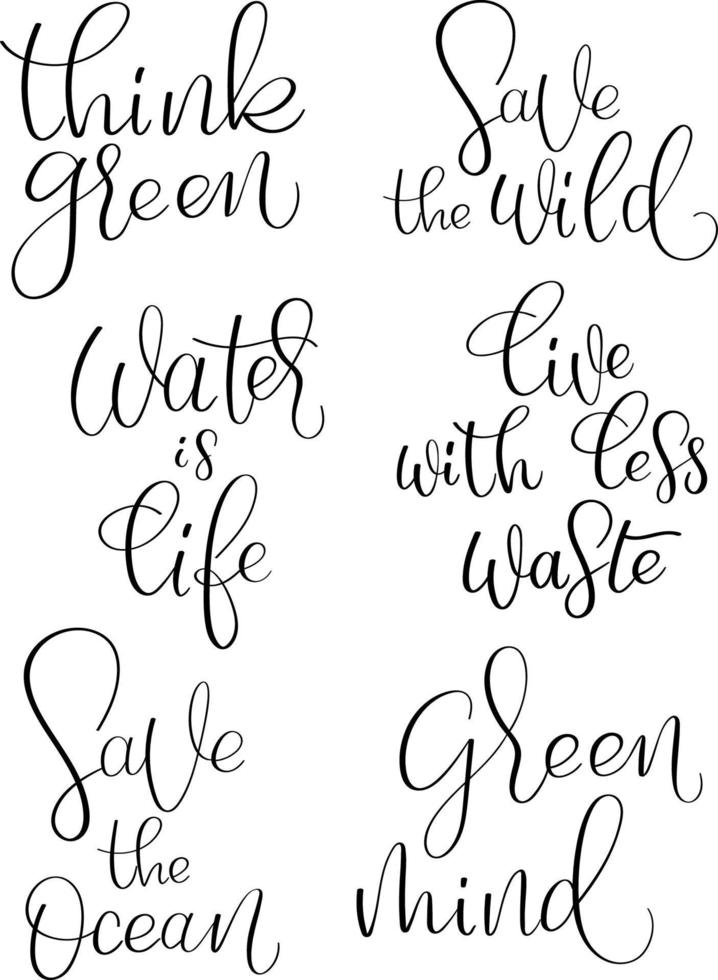 think
green
Save
the Wild
Water
is
life
live
with less
waste
Save
the
Ocean
Green
mind